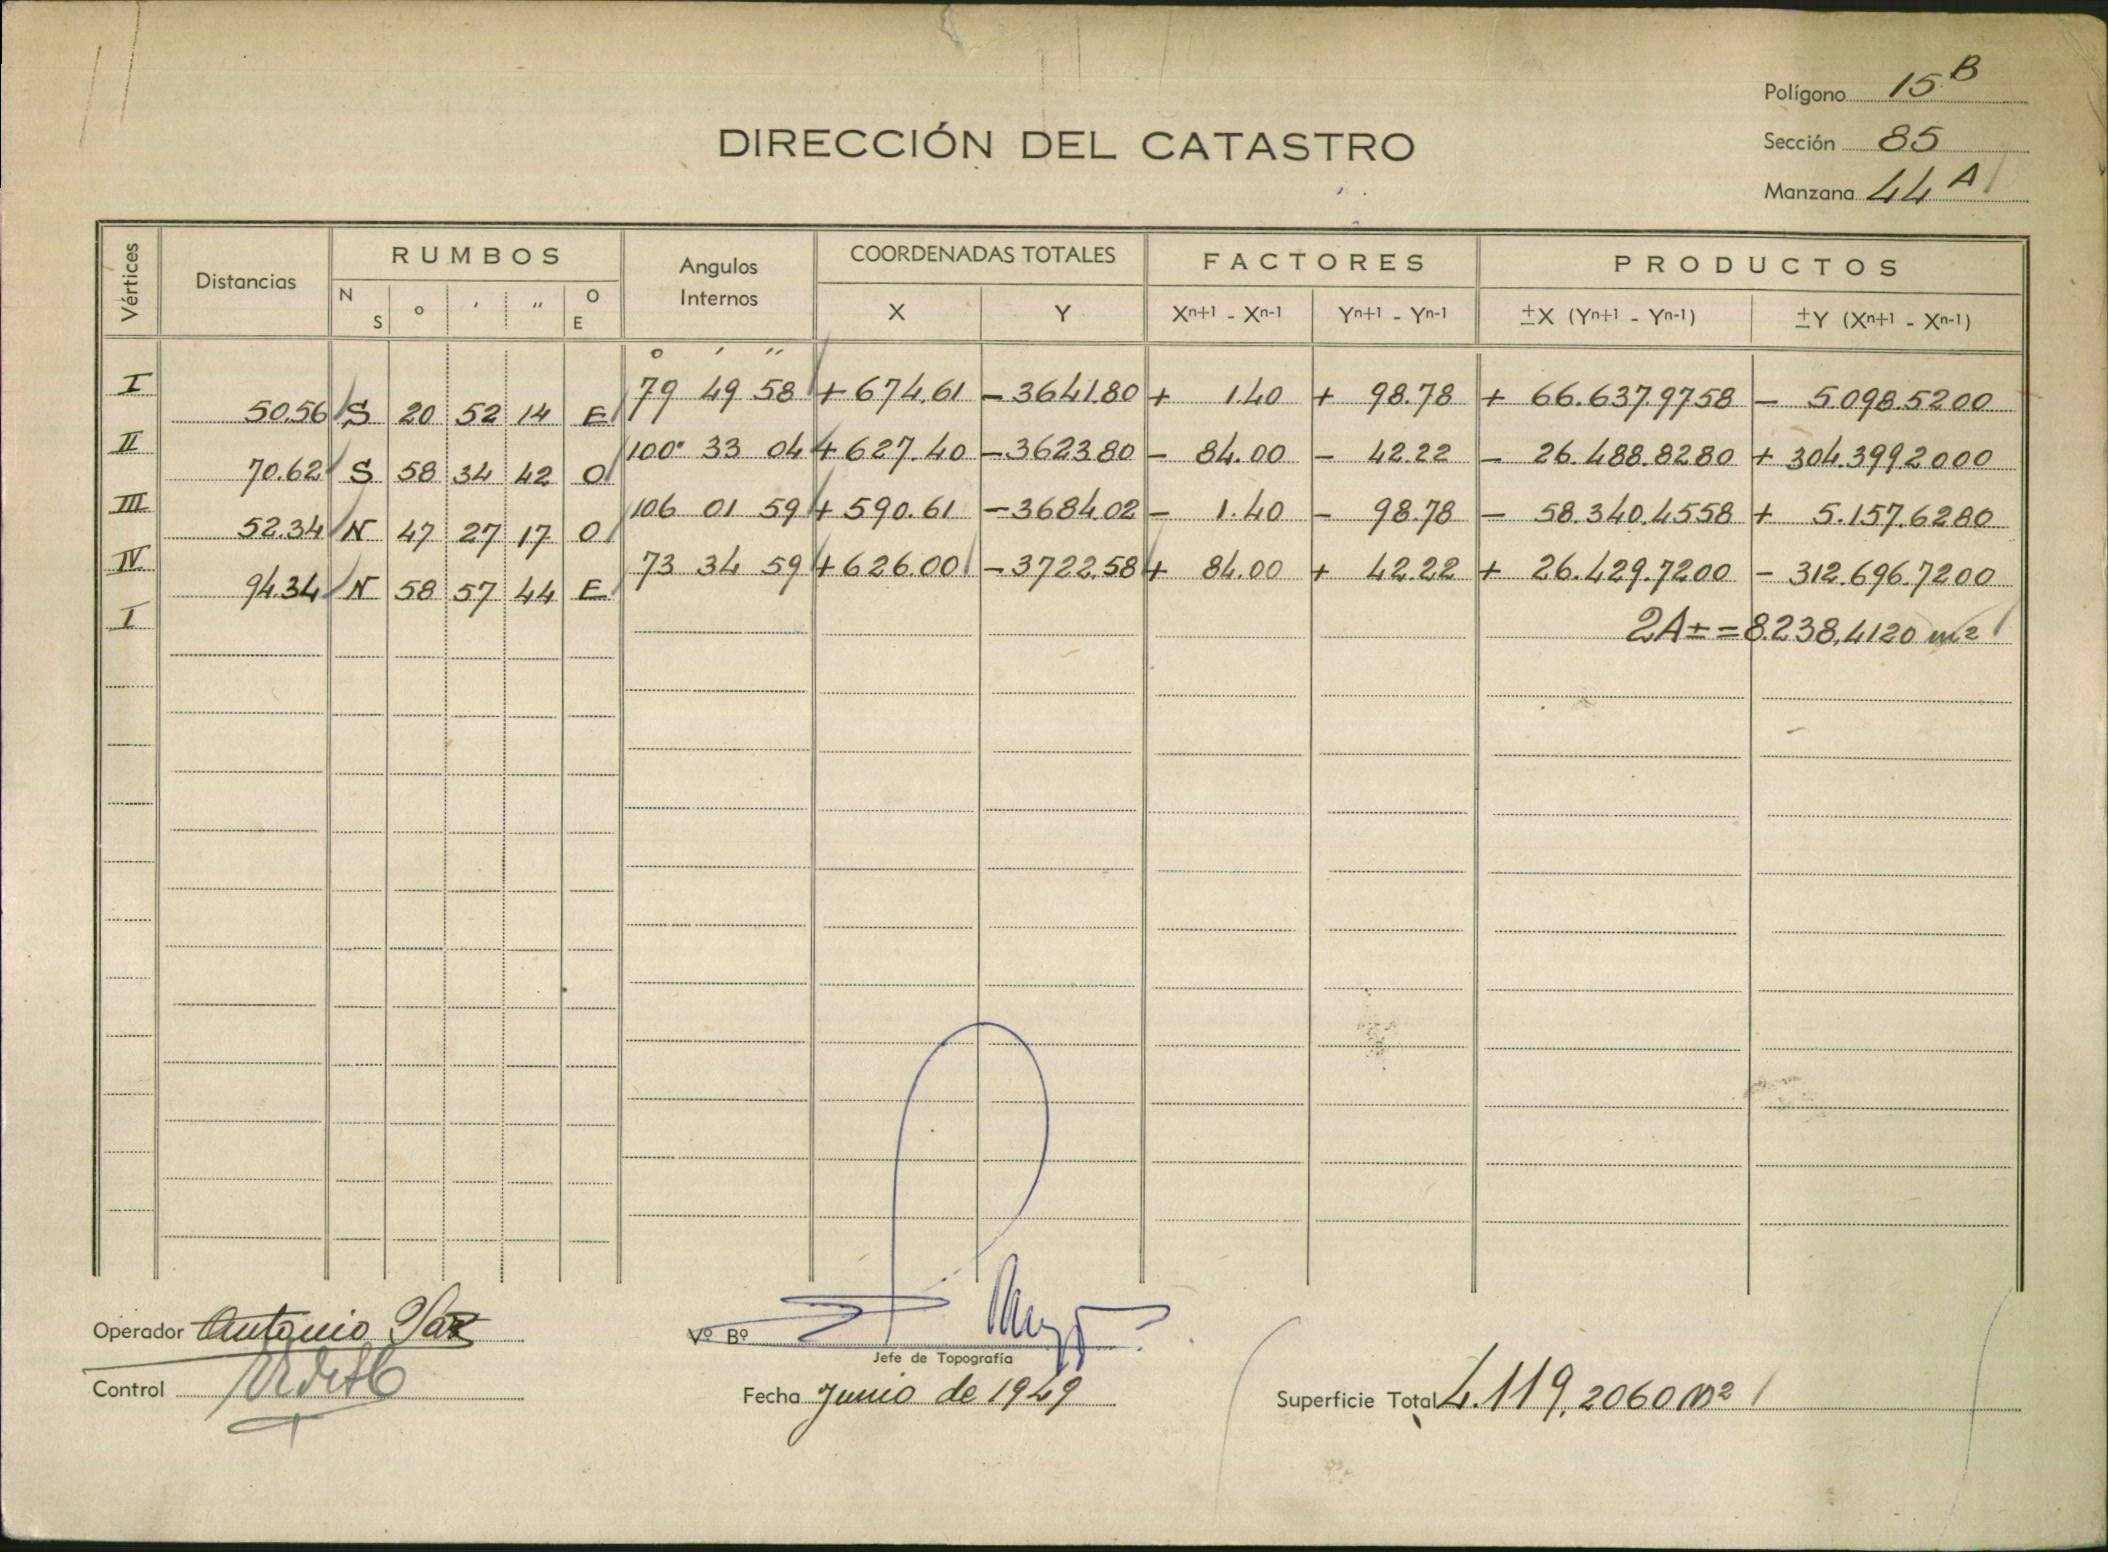 Polígono 15 B
DIRECCIÓN DEL CATASTRO
Sección 85
Manzana 44 A
Vértices Distancias RUMBOS Angulos Internos COORDENADAS TOTALES FACTORES PRODUCTOS
N S o ' " O E X Y Xn+1 - Xn-1 Yn+1 - Yn-1 ±X (Yn+1 - Yn-1) ±Y (Xn+1 - Xn-1)
o ' "
I 79 49 58 + 674.61 - 3641.80 + 1.40 + 98.78 + 66.637.9758 - 5.098.5200
50.56 S 20 52 14 E
II 100° 33 04 + 627.40 - 3623.80 - 84.00 - 42.22 - 26.488.8280 + 304.399.2000
70.62 S 58 34 42 O
III 106 01 59 + 590.61 - 3684.02 - 1.40 - 98.78 - 58.340.4558 + 5.157.6280
52.34 N 47 27 17 O
IV 73 34 59 + 626.00 - 3722.58 + 84.00 + 42.22 + 26.429.7200 - 312.696.7200
94.34 N 58 57 44 E
I 2A± = 8.238,4120 m2
Operador Antonio
Vº Bº
Jefe de Topografía
Control
Fecha Junio de 1949
Superficie Total 4.119,2060 m2